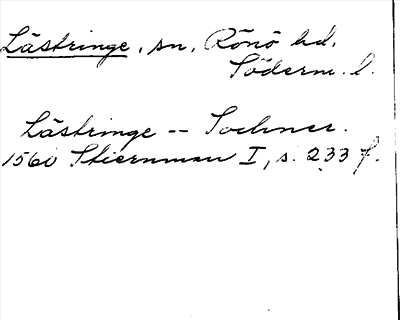 Lästringe, sn, Rönö hd.
Söderm. l.
Lästringe -- Sochner.
1560 Stiernman I, s. 233 f.